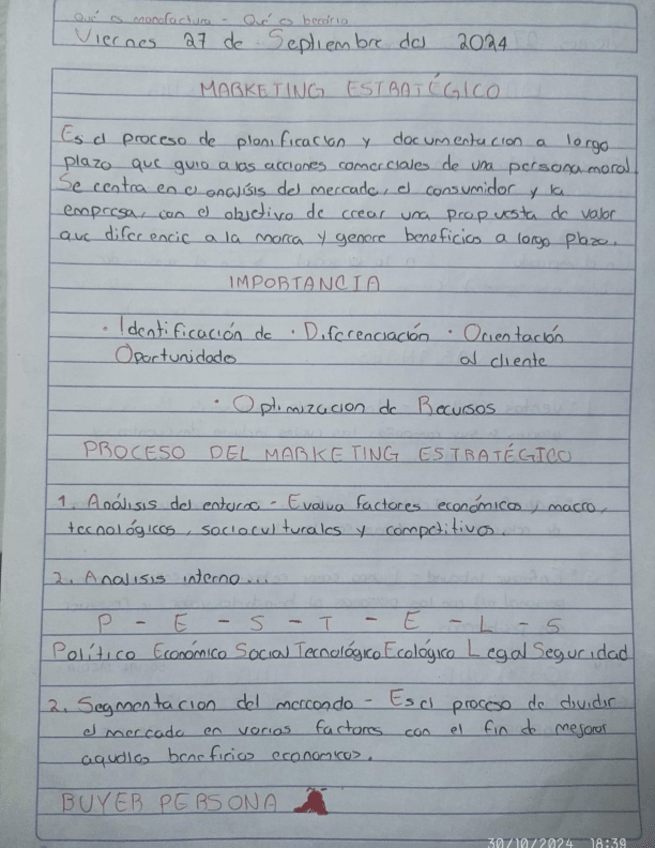 Qué es manofactura - Qué es bencina
Viernes 27 de Septiembre del 2024
MARKETING ESTRATÉGICO
Es el proceso de planificacion y documentacion a largo
plazo que guia a las acciones comerciales de una persona moral.
Se centra en el analisis del mercado, el consumidor y la
empresa, con el objetivo de crear una propuesta de valor
que diferencie a la marca y genere beneficios a largo plazo.
IMPORTANCIA
· Identificación de · Diferenciación · Orientación
Oportunidades al cliente
· Optimizacion de Recursos
PROCESO DEL MARKETING ESTRATÉGICO
1. Análisis del entorno - Evalua factores económicos, macro,
tecnológicos, socioculturales y competitivos.
2. Analisis interno...
P - E - S - T - E - L - S
Político Económico Social Tecnológico Ecológico Legal Seguridad
2. Segmentacion del mercando - Es el proceso de dividir
el mercado en varios factores con el fin de mejorar
aquellos beneficios economicos.
BUYER PERSONA
30/10/2024 18:39